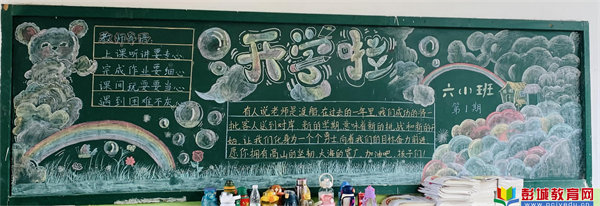 教师寄语
上课听讲要专心
完成作业要细心
课间玩耍要当心
遇到困难不灰心
开学啦
有人说老师是渡船,在过去的一年里,我们成功的将一
批客人送到对岸。新的学期,意味着新的挑战和新的开
始,让我们化身为一个个勇士向着我们的目标奋力前进,
愿你拥有高山的坚韧,大海的宽广。加油吧,孩子们!
六(1)班
第1期
彭城教育网
www.pcjyedu.cn